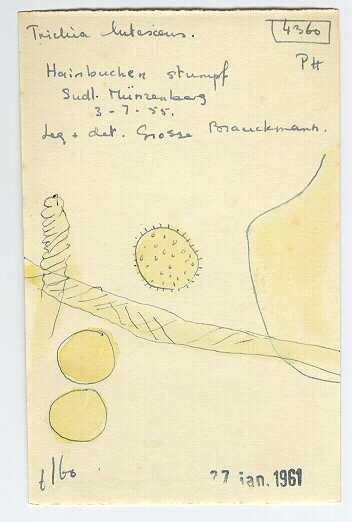 Trichia lutescens.
4360
PH
Hainbuchen stumpf
Sudl. Münzenberg
3-7-55.
Leg + det. Grosse Brauckmann.
1/60
27 jan. 1961